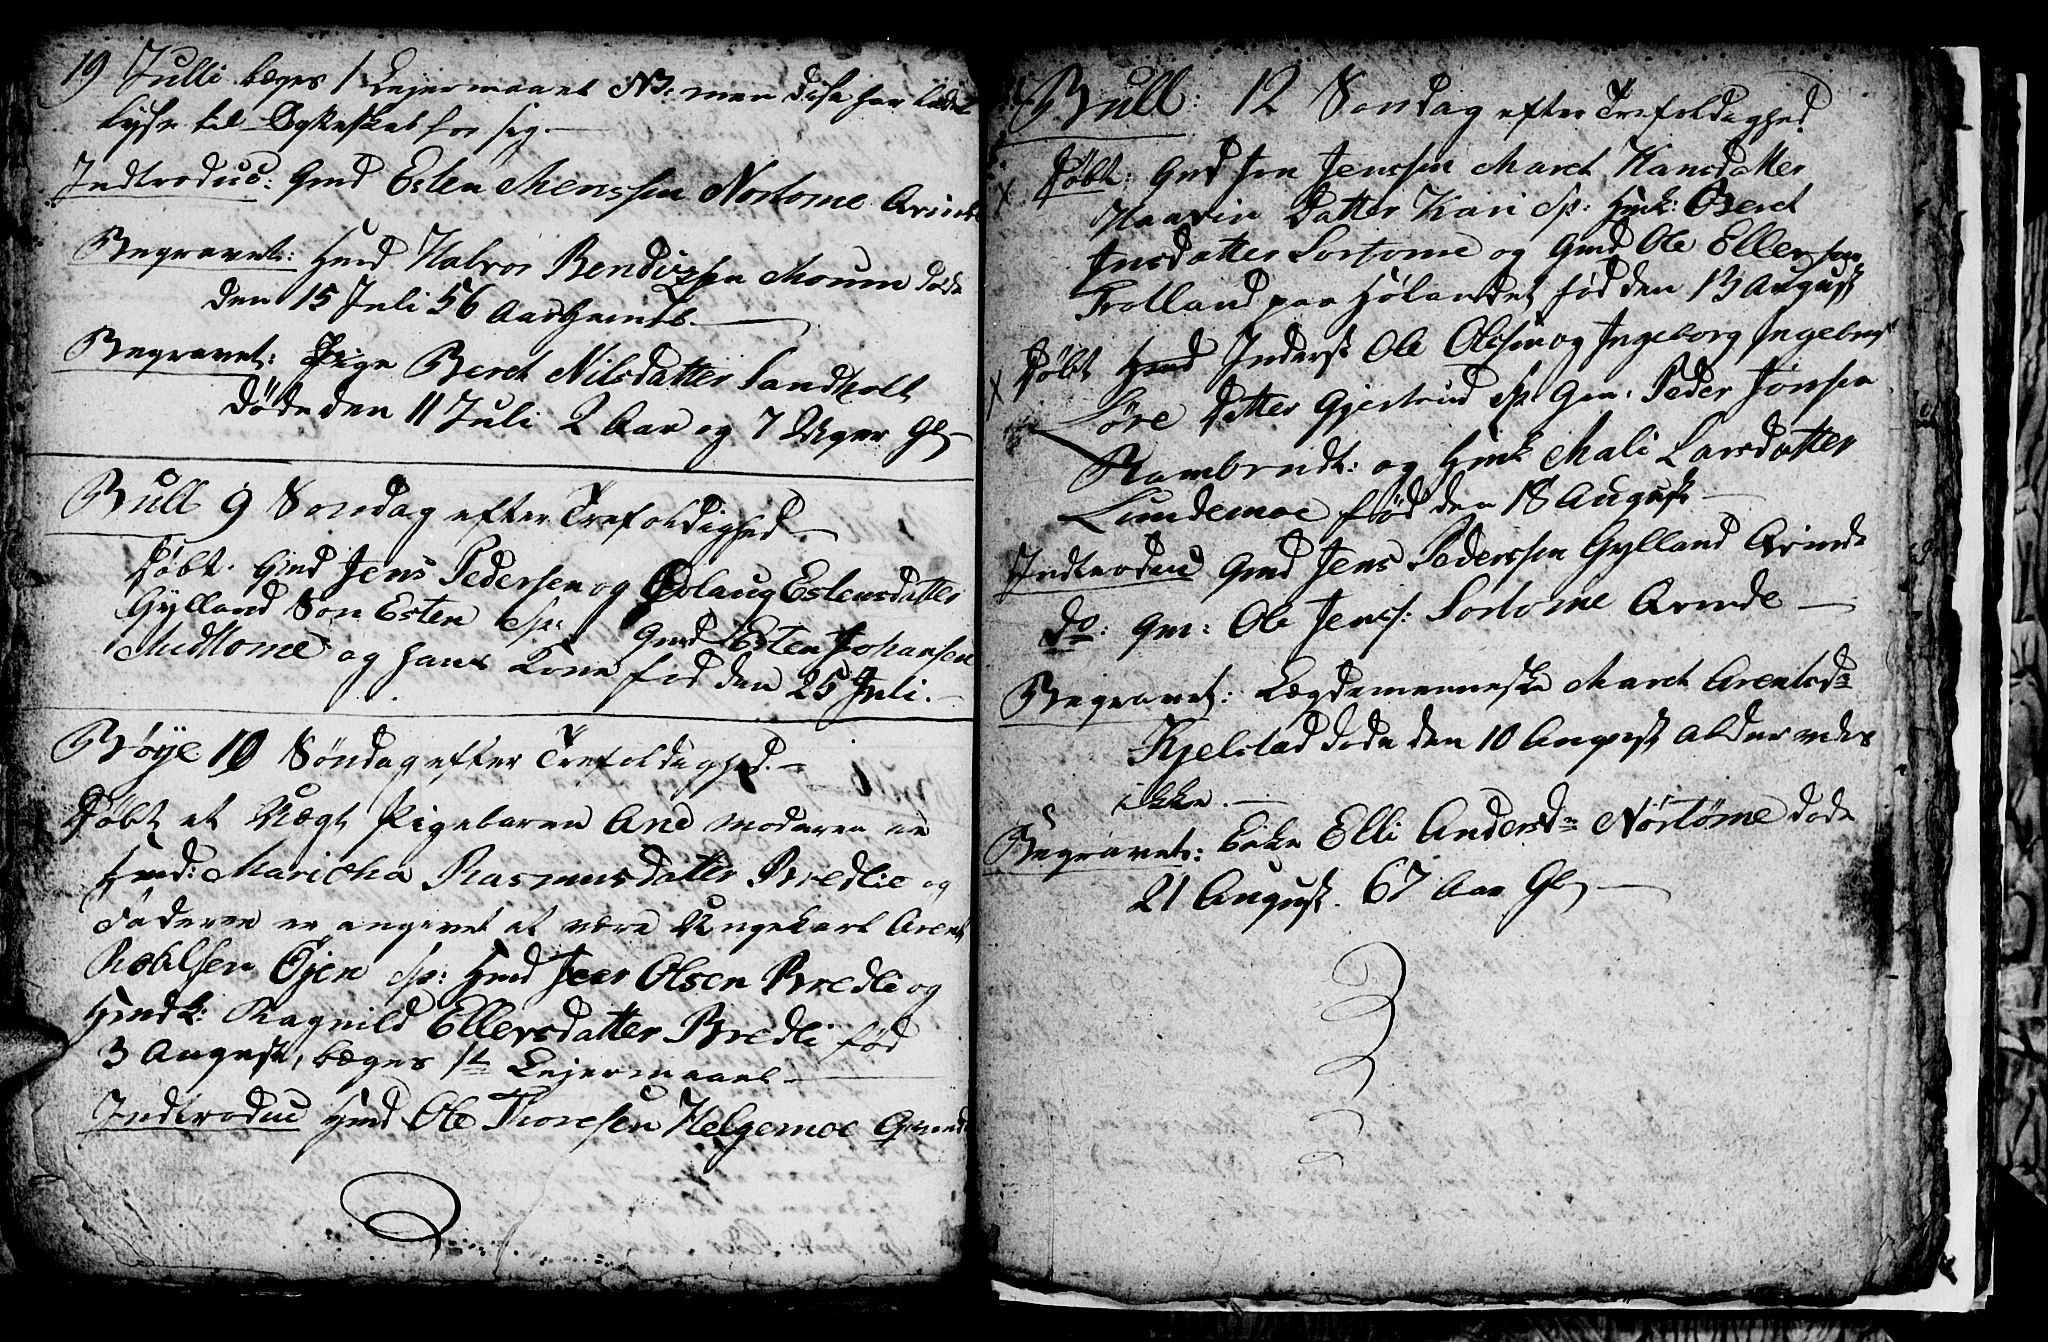 19 Julli beges 1 Lejermaael NB: men disse har ladet
lyse til Egteskab for sig. —
Introduc: Gmd Esten Mensen Nortome Qvinde
Begravet: Hmd Halvor Bendixsen Moum døde
den 15 Juli 56 Aar Gamel. —
Begravet: Pige Beret Nilsdatter Sandholt
døde den 11 Juli 2 Aar og 7 Uger Gl
Bull 9 Søndag efter Trefoldighed. —
Døbt. Gmd Jens Pedersen og Oolaug Estensdatter
Gylland Søn Esten Sp: Gmd Esten Johansen
Midttome og hans Kone fød den 25 Juli. —
Bøye 10 Søndag efter Trefoldighed. —
Døbt et Uægt Pigebaren Ane moderen er
Hmd: Maritha Rasmusdatter Bredlie og
Faderen er angivet at være Ungekarl Arent
Øjen Sp: Hmd Jens Olsen Bredli og
Hmdk: Ragnild Ellersdatter Bredli fød
3 August, beges 1t Lejermaael —
Introduc Hmd Ole Thoresen Helgemoe Qvinde
Bull: 12 Søndag efter Trefoldighed
x Døbt: Gmd Jon Jenssen Maret Hansdatter
Haavin Datter Kari Sp: Hmk: Beret
Jnsdatter Sortome og Gmd Ole Ellersen
Trolland paa Hølandet fød den 13 August
x Døbt Hmd Inderst Ole Olsen og Ingeborg Ingebrigt
Løre Datter Gjertrud Sp. Gm: Peder Jonsen
Rambrudt: og Hmk Mali Larsdatter
Lundemoe fød den 18 August —
Introduc Gmd Jens Pedersen Gylland Qvinde
do: Gm: Ole Jens: Sortome Qvinde —
Begravet: Lægdemenneske Maret Arentsd
Kjelstad døde den 10 August alder vides
ikke. —
Begravet: Enke Elli Andersd Nørtøme døde
21 August. 67 Aar Gl —